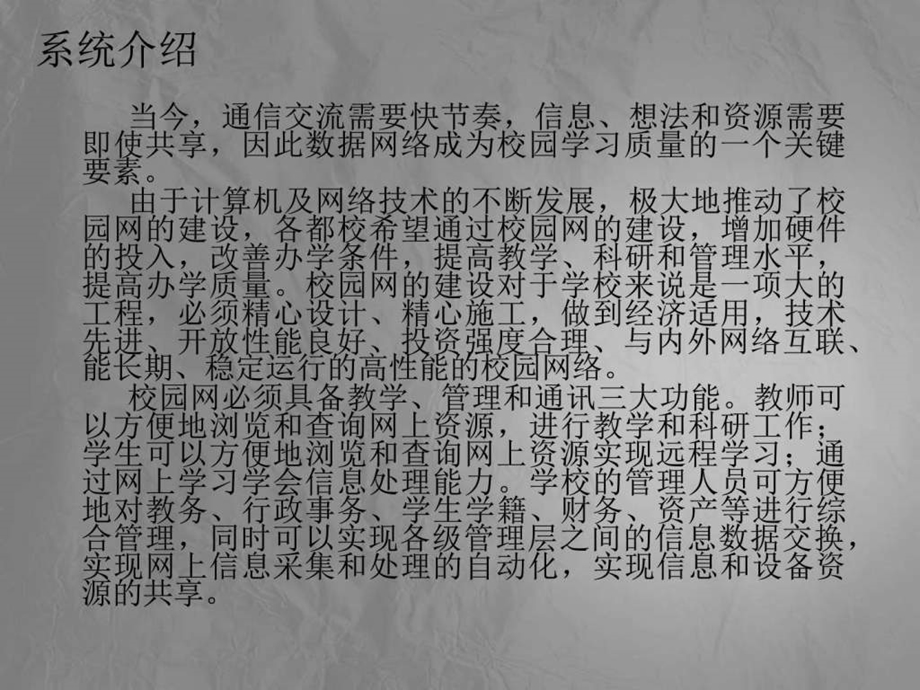 系统介绍
当今，通信交流需要快节奏，信息、想法和资源需要
即使共享，因此数据网络成为校园学习质量的一个关键
要素。
由于计算机及网络技术的不断发展，极大地推动了校
园网的建设，各都校希望通过校园网的建设，增加硬件
的投入，改善办学条件，提高教学、科研和管理水平，
提高办学质量。校园网的建设对于学校来说是一项大的
工程，必须精心设计、精心施工，做到经济适用，技术
先进、开放性能良好、投资强度合理、与内外网络互联、
能长期、稳定运行的高性能的校园网络。
校园网必须具备教学、管理和通讯三大功能。教师可
以方便地浏览和查询网上资源，进行教学和科研工作；
学生可以方便地浏览和查询网上资源实现远程学习；通
过网上学习学会信息处理能力。学校的管理人员可方便
地对教务、行政事务、学生学籍、财务、资产等进行综
合管理，同时可以实现各级管理层之间的信息数据交换，
实现网上信息采集和处理的自动化，实现信息和设备资
源的共享。